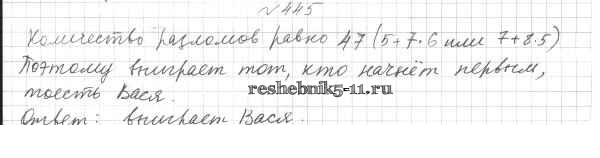 № 445
Количество разломов равно 47 (5+7·6 или 7+8·5)
Поэтому выиграет тот, кто начнёт первым,
тоесть Вася.
reshebnik5-11.ru
Ответ: выиграет Вася.